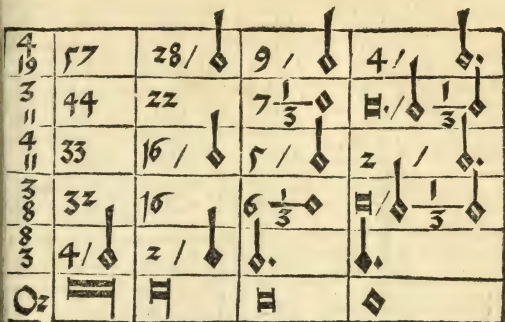 4/19 57 28 / 9 / 4 / .
3/11 44 22 7 1/3 . / 1/3
4/11 33 16 / 5 / 2 / .
3/8 32 16 6 1/3 / 1/3
8/3 4 / 2 / . .
O2